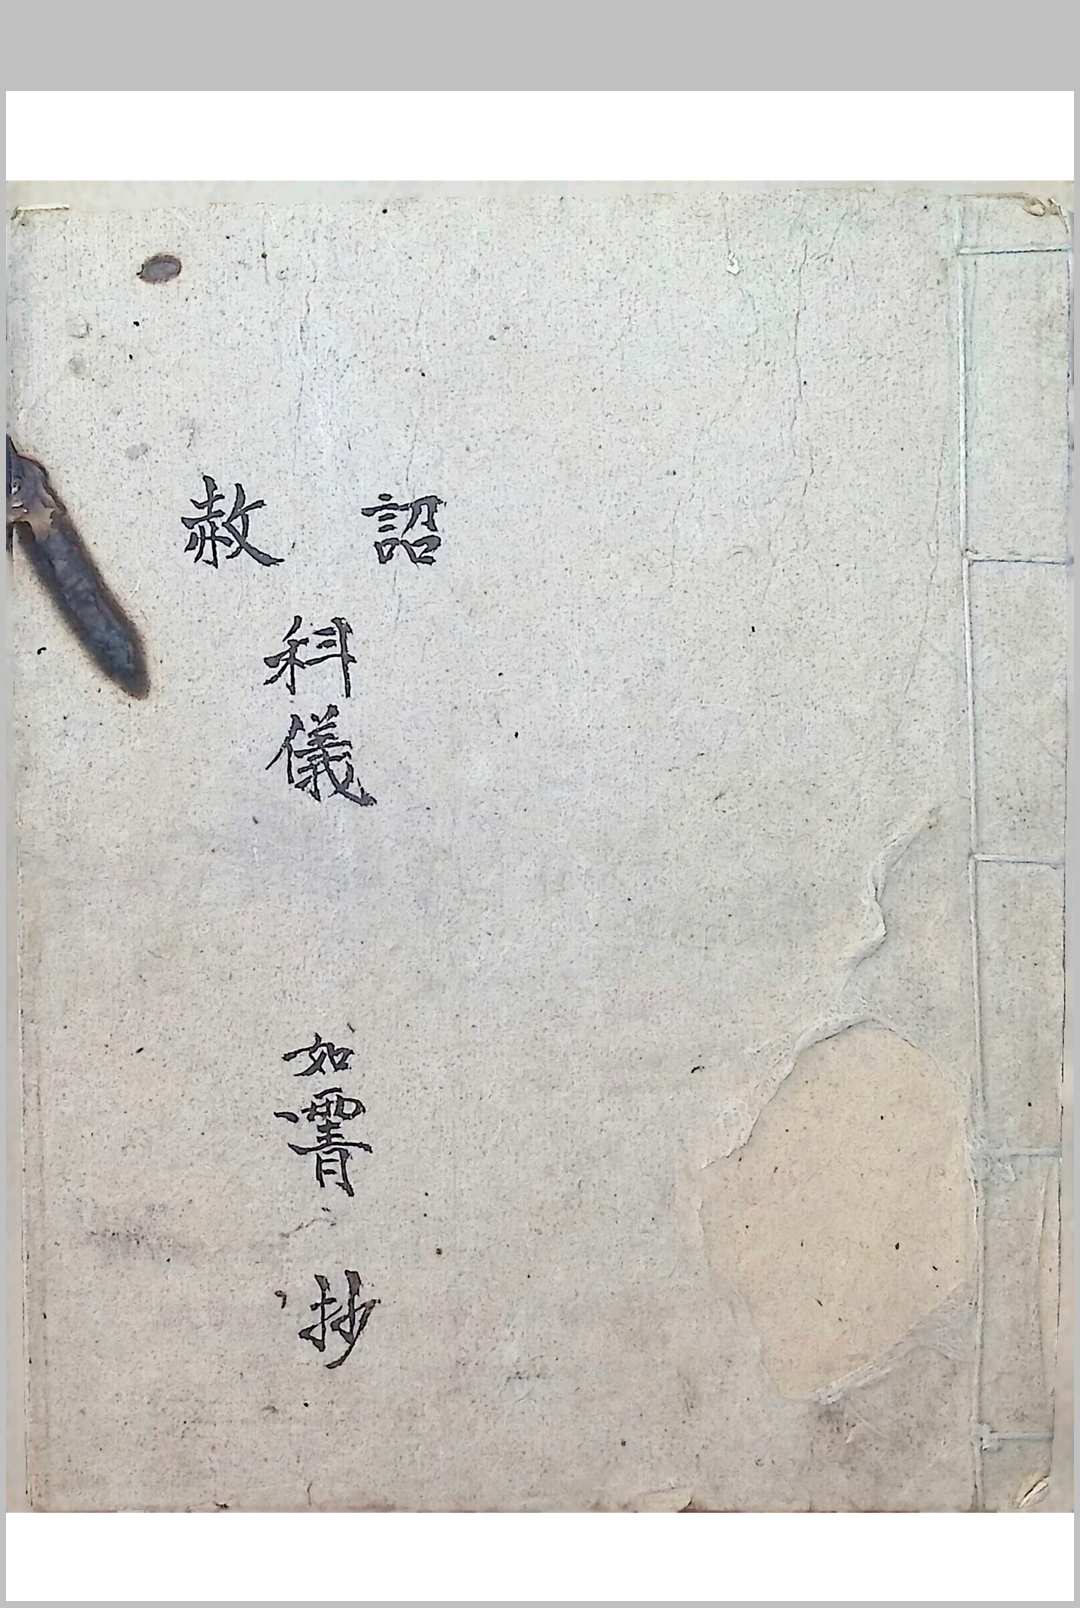 詔赦
科儀
如霄抄